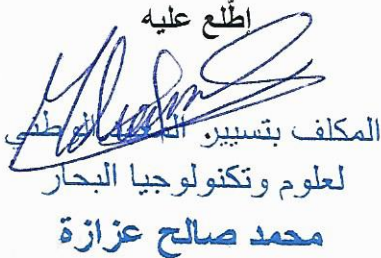 اطّلع عليه
المكلف بتسيير المعهد الوطني
لعلوم وتكنولوجيا البحار
محمد صالح عزازة